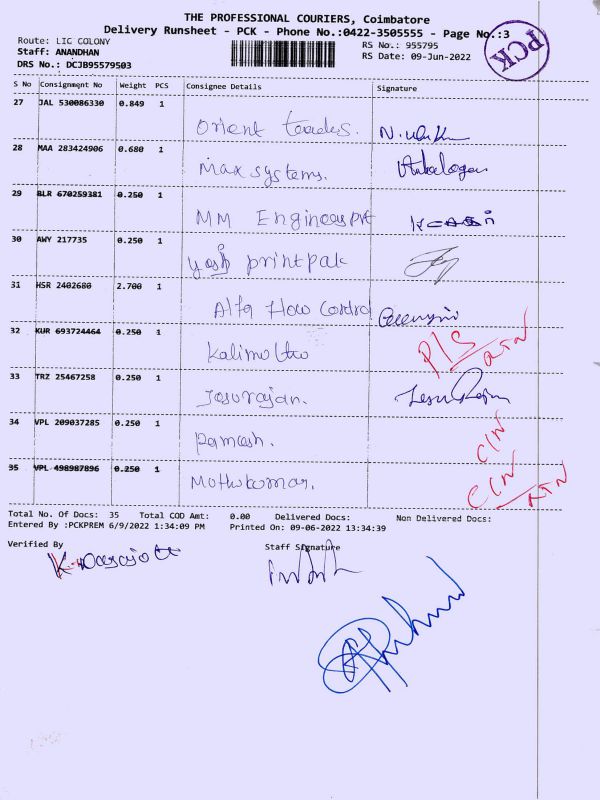 THE PROFESSIONAL COURIERS, Coimbatore
Delivery Runsheet - PCK - Phone No.:0422-3505555 - Page No.:3
Route: LIC COLONY
Staff: ANANDHAN
DRS No.: DCJB95579503
RS No.: 955795
RS Date: 09-Jun-2022
PCK
S No Consignment No Weight PCS Consignee Details Signature
27 JAL 530086330 0.849 1
Orient traders.
28 MAA 283424906 0.680 1
Max systems.
29 BLR 670259381 0.250 1
MM Engineers Pvt
30 AWY 217735 0.250 1
Yash printpak
31 HSR 2402680 2.700 1
Alfa Flow Control
32 KUR 693724464 0.250 1
P/S
33 TRZ 25467258 0.250 1
Jesurajan.
34 VPL 209037285 0.250 1
Ramesh. C/N
35 VPL 498987896 0.250 1
Muthukumar. C/N
Total No. Of Docs: 35 Total COD Amt: 0.00 Delivered Docs: Non Delivered Docs:
Entered By :PCKPREM 6/9/2022 1:34:09 PM Printed On: 09-06-2022 13:34:39
Verified By Staff Signature